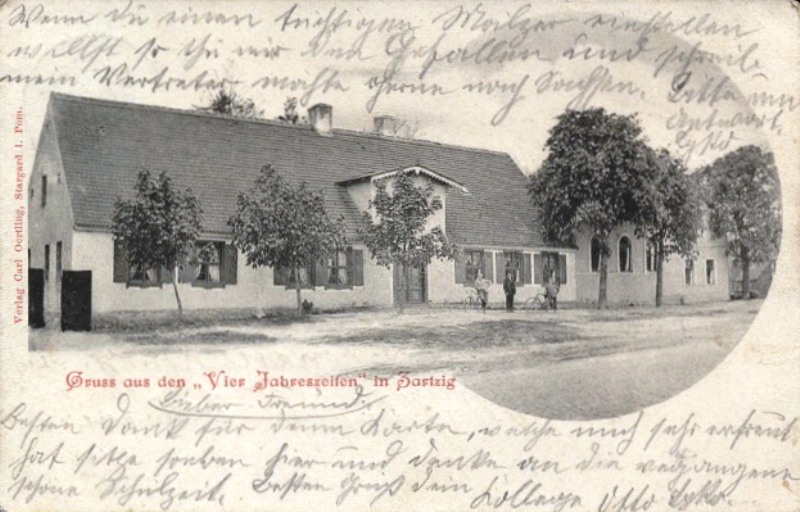 Wenn du einen tüchtigen Mälzer einstellen
willst so thu mir den Gefallen und schreib
mein Vertreter möchte gerne nach Sachsen.
Bitte um
Antwort.
Verlag Carl Oertling, Stargard i. Pom.
Gruss aus den „Vier Jahreszeiten" in Zartzig
Lieber Freund!
Besten Dank für deine Karte, welche mich sehr erfreut
hat sitze soeben hier und denke an die vergangene
schöne Schulzeit. Besten Gruß dein Kollege Otto